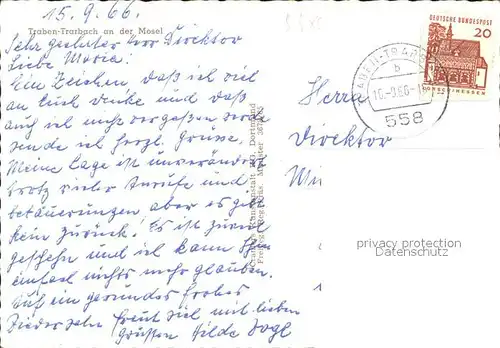 15.9.66.
Traben-Trarbach an der Mosel
Sehr geehrter Herr Direktor
Liebe Maria!
Ein Zeichen daß ich viel
an Euch denke und daß
auch ich nicht vergessen werde
sende ich herzl. Grüsse.
Meine Lage ist unverändert
trotz vieler Anrufe und
beteuerungen aber es gibt
kein zurück. Es ist zuviel
geschehn und ich kann Ihm
einfach nichts mehr glauben.
Auf ein gesundes frohes
Wiedersehn freut sich mit lieben
Grüßen Hilde Vogl
Dortmund
Münster
DEUTSCHE BUNDESPOST
20
LORSCH/HESSEN
TRABEN-TRARBACH
b
16.-9.66-18
558
Herrn
Direktor
privacy protection
Datenschutz